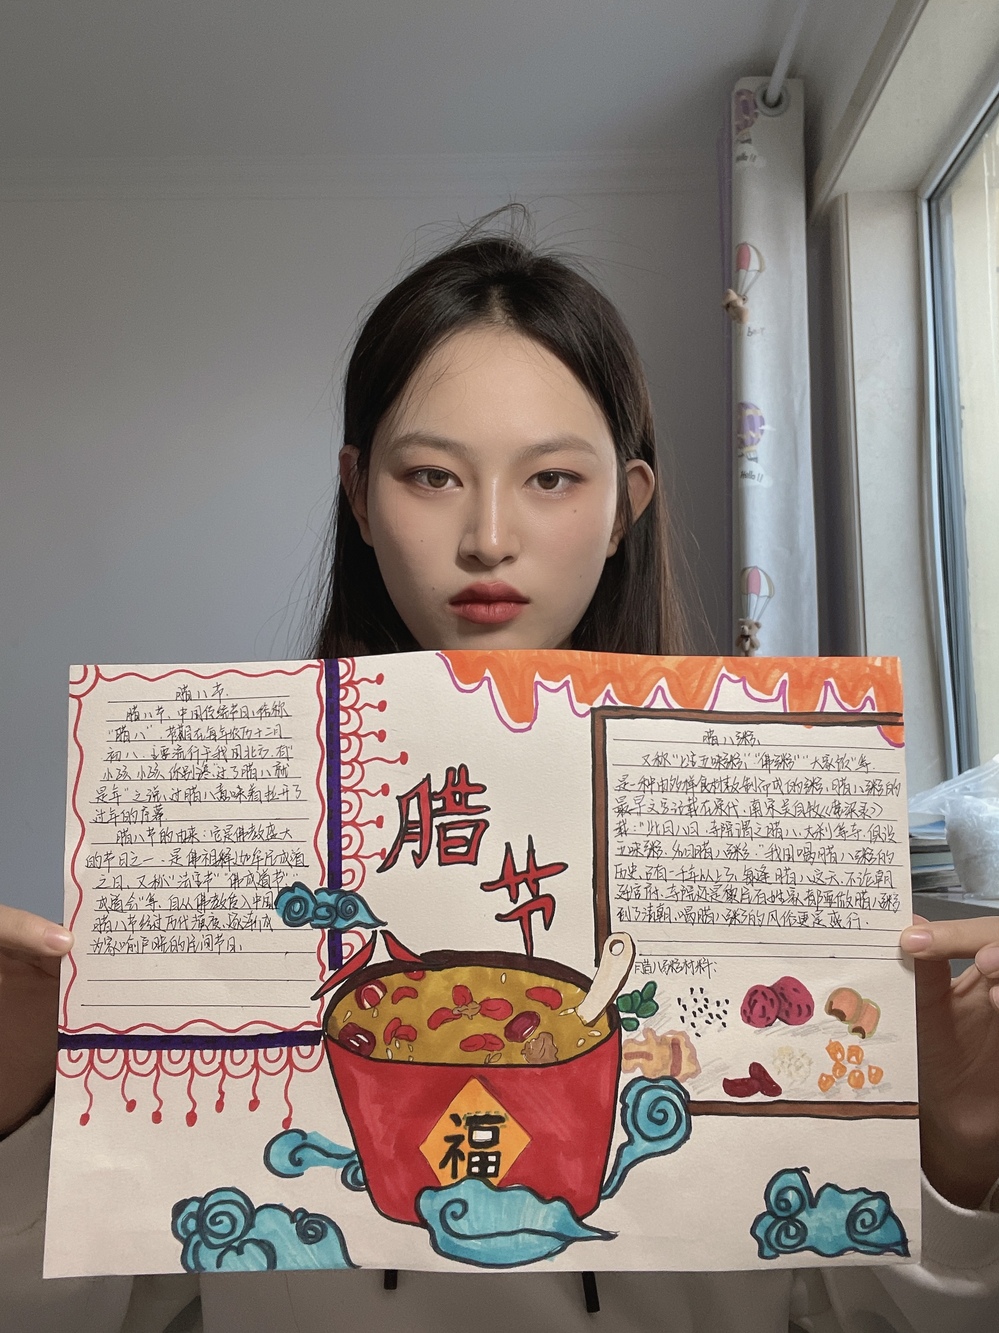 腊八节
腊八节、中国传统节日、俗称
"腊八"、根期在每年农历十二月
初八、主要流行于我国北方、有"
小孩小孩、你别馋、过了腊八就
是年"之说、过腊八意味着拉开了
过年的序幕
腊八节的由来:它是佛教盛大
的节日之一、是佛祖释迦牟尼成道
之日、又称"法宝节""佛成道节""
成道会"等、自从佛教传入中国
腊八节经过历代演变、逐渐成
为家喻户晓的民间节日、
腊
八
节
福
腊八粥、
又称"七宝五味粥""佛粥""大家饭"等
是一种由多样食材熬制而成的粥、腊八粥的
最早文字记载在宋代、南宋吴自牧《梦粱录》
载:"此日八日、寺院谓之腊八、大刹等寺、俱设
五味粥、名曰腊八粥、"我国喝腊八粥的
历史、已有一千年以上了、每逢腊八这天、不论朝
廷官府、寺院还是黎民百姓家都要做腊八粥
到了清朝、喝腊八粥的风俗更是盛行、
腊八粥材料:
Hello!!
Hello!!